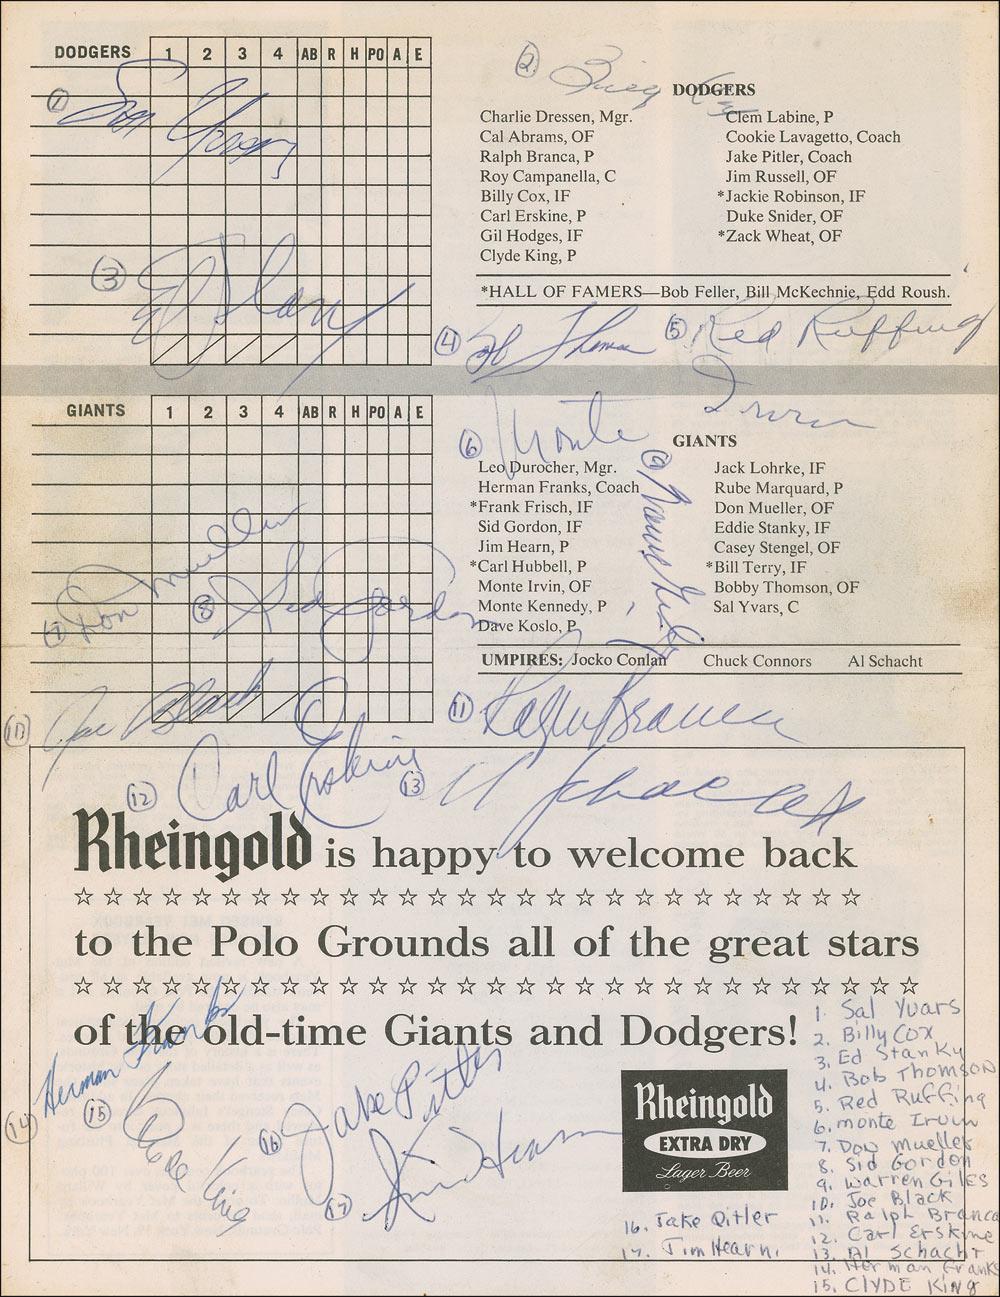 DODGERS 1 2 3 4 AB R H PO A E
② Billy Cox
DODGERS
① Sal Yvars
Charlie Dressen, Mgr.
Cal Abrams, OF
Ralph Branca, P
Roy Campanella, C
Billy Cox, IF
Carl Erskine, P
Gil Hodges, IF
Clyde King, P
Clem Labine, P
Cookie Lavagetto, Coach
Jake Pitler, Coach
Jim Russell, OF
*Jackie Robinson, IF
Duke Snider, OF
*Zack Wheat, OF
③ Ed Stanky
*HALL OF FAMERS—Bob Feller, Bill McKechnie, Edd Roush.
④ Bob Thomson
⑤ Red Ruffing
GIANTS 1 2 3 4 AB R H PO A E
⑥ Monte Irvin
GIANTS
Leo Durocher, Mgr.
Herman Franks, Coach
*Frank Frisch, IF
Sid Gordon, IF
Jim Hearn, P
*Carl Hubbell, P
Monte Irvin, OF
Monte Kennedy, P
Dave Koslo, P
Jack Lohrke, IF
Rube Marquard, P
Don Mueller, OF
Eddie Stanky, IF
Casey Stengel, OF
*Bill Terry, IF
Bobby Thomson, OF
Sal Yvars, C
⑨ Warren Giles
⑦ Don Mueller
⑧ Sid Gordon
UMPIRES: Jocko Conlan Chuck Connors Al Schacht
⑩ Joe Black
⑪ Ralph Branca
⑫ Carl Erskine
⑬ Al Schacht
Rheingold is happy to welcome back
to the Polo Grounds all of the great stars
of the old-time Giants and Dodgers!
⑭ Herman Franks
⑮ Clyde King
⑯ Jake Pitler
⑰ Jim Hearn
Rheingold
EXTRA DRY
Lager Beer
1. Sal Yvars
2. Billy Cox
3. Ed Stanky
4. Bob Thomson
5. Red Ruffing
6. Monte Irvin
7. Don Mueller
8. Sid Gordon
9. Warren Giles
10. Joe Black
11. Ralph Branca
12. Carl Erskine
13. Al Schacht
14. Herman Franks
15. CLYDE King
16. Jake Pitler
17. Jim Hearn.